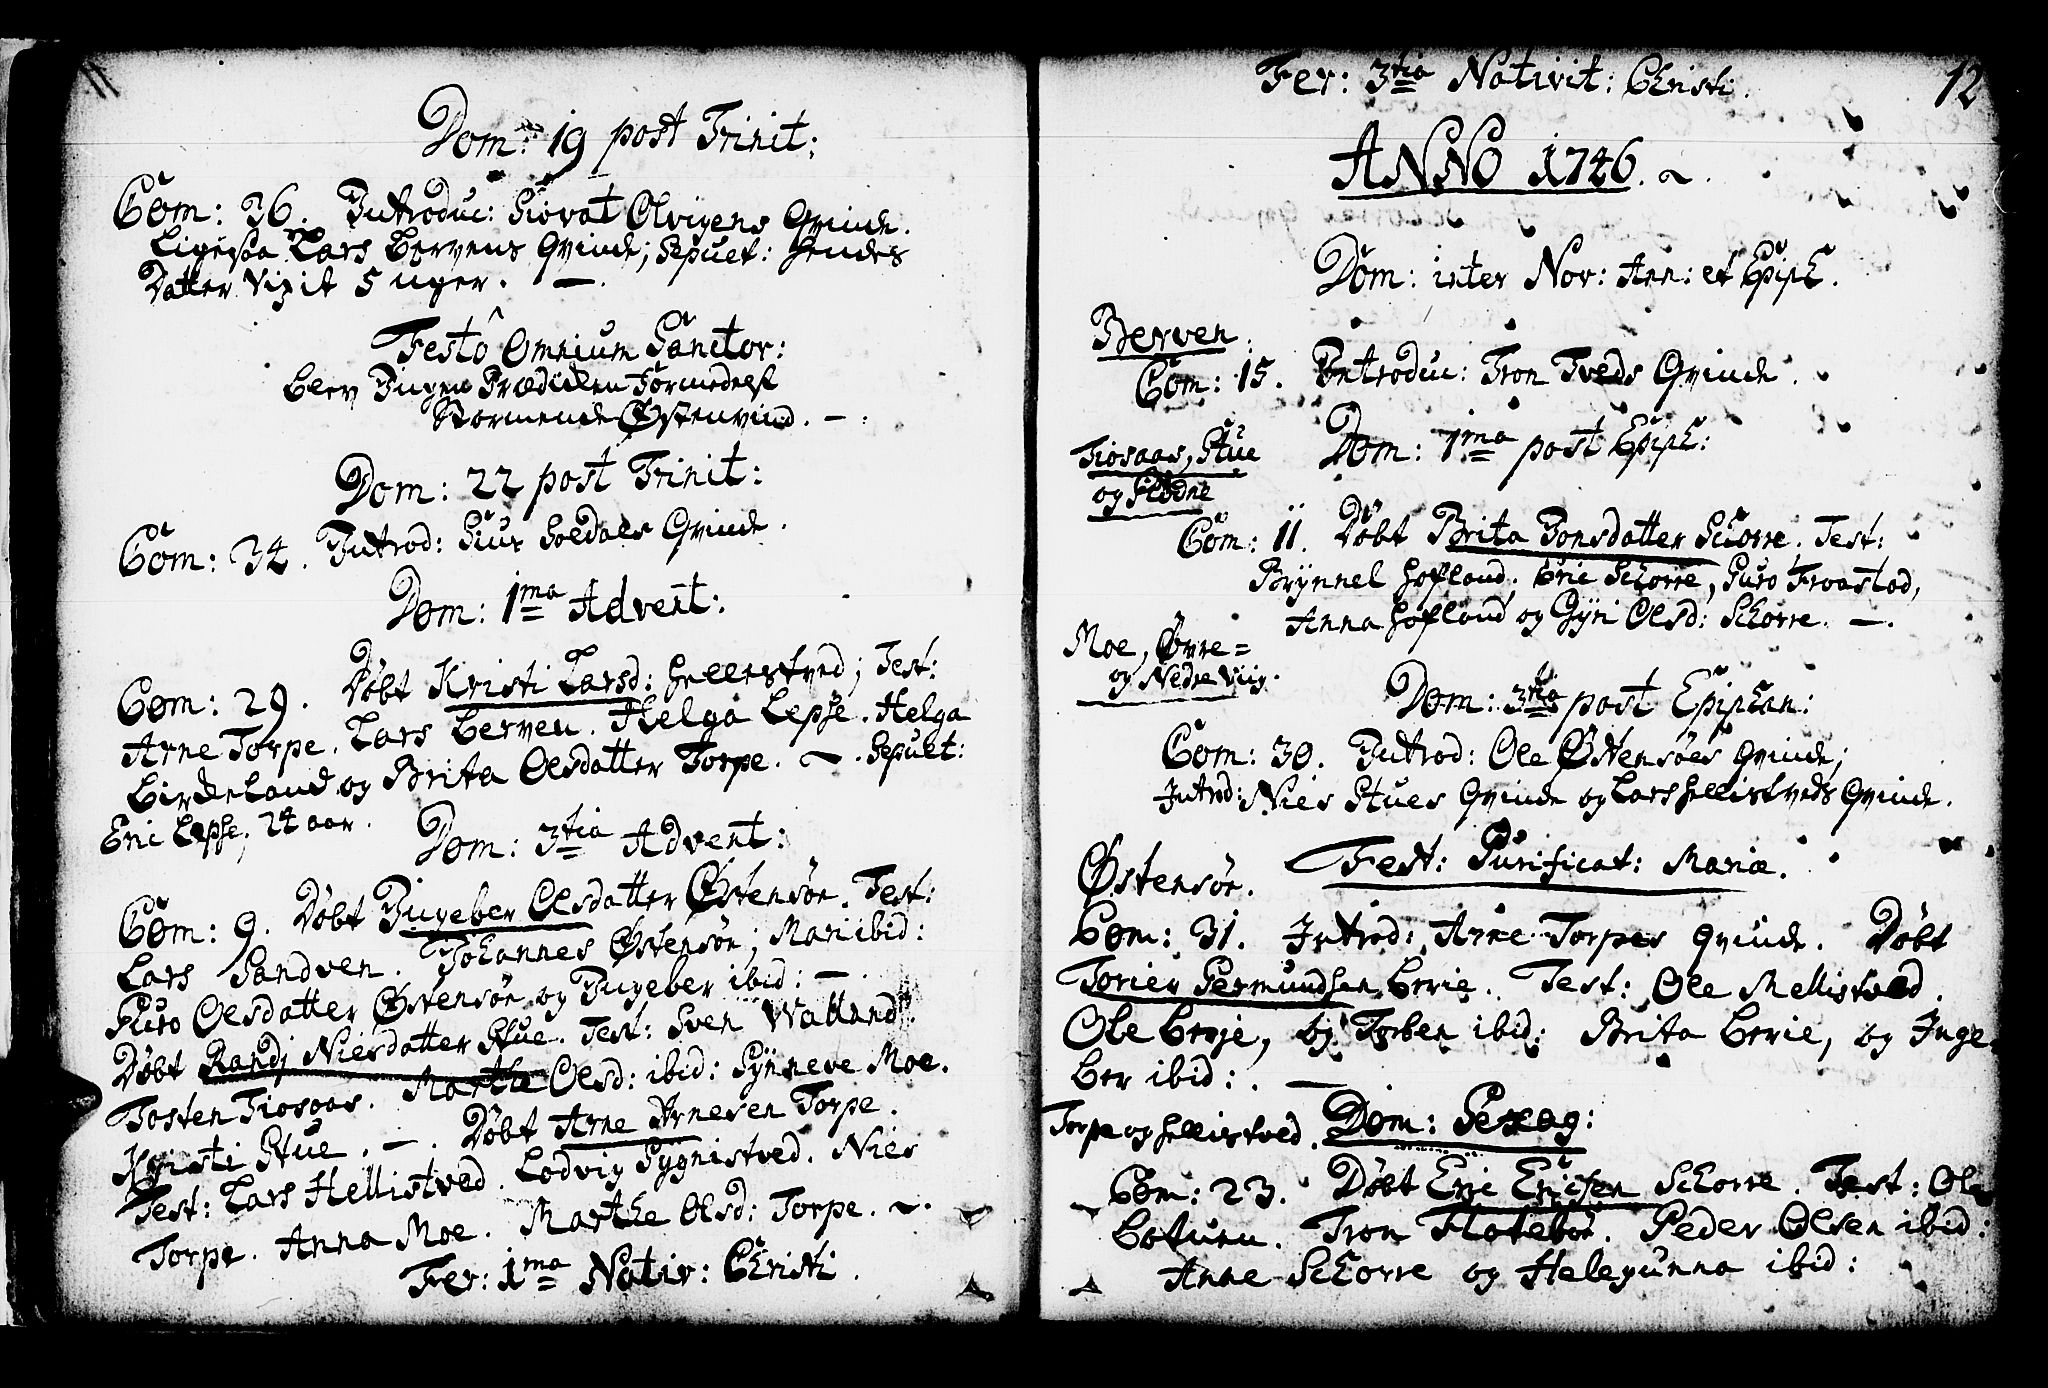 11
Dom: 19 post Trinit:
Com: 36. Introduc: Siovat Olvigens Qvinde.
Ligesaa Lars Bervens Qvinde; Sepult: hendes
Datter Vigit 5 uger. —.
Festo Omnium Sanctor:
blev Ingen Prædiken formedelst
Stormende Østenvind. —:
Dom: 22 post Trinit:
Com: 34. Introd: Siur Soldals Qvinde.
Dom: 1ma Advent:
Com: 29. Døbt Kristi Larsd: Hellestved; Test:
Arne Torpe. Lars Berven. Helga Lepse. Helga
Birdeland og Brita Olsdatter Torpe. ~. Sepult:
Eric Lepse, 24 aar.
Dom: 3tia Advent:
Com: 9. Døbt Ingeber Olsdatter Østensøn. Test:
Lars Sandven. Johannes Østensøn; Mari ibid:
Guro Olsdatter Østensøn og Ingeber ibid: —.
Døbt Randj Nielsdatter Stue. Test: Sven Walland.
Tosten Tiosaas. Marthe Olsd: ibid: Synneve Moe.
Kristi Stue. —. Døbt Arne Arnesen Torpe.
Test: Lars Hellistved. Lodvig Sygnistved. Niels
Torpe. Anna Moe. Marthe Olsd: Torpe. ~.
Fer: 1ma Nativ: Christi.
Fer: 3tia Nativit: Christi.
12
ANNO 1746. ~.
Dom: inter Nov: Ann: et Epiph.
Berven.
Com: 15. Introduc: Tron Tveds Qvinde.
Tiosaas, Stue
og Flodne
Dom: 1ma post Epiph:
Com: 11. Døbt Brita Jonsdatter Schorre. Test:
Brynnel Hofland. Eric Schorre, Guro Froastad,
Anna Hofland og Gyri Olsd: Schorre. —.
Moe, Øvre=
og Nedre Viig.
Dom: 3tia post Epiphan:
Com: 30. Introd: Ole Østensøes Qvinde;
Introd: Niels Stues Qvinde og Lars Hellistveds Qvinde.
Østensøn.
Fest: Purificat: Mariæ.
Com: 31. Introd: Arne Torpes Qvinde. Døbt
Torier Germundsen Berie. Test: Ole Mellistved.
Ole Berje, og Torben ibid: Brita Berie, og Inge
ber ibid: . —
Torpe og Hellistved.
Dom: Sexag:
Com: 23. Døbt Eric Ericsen Schorre. Test: Ole
Botunu. Tron Flotebøe. Peder Olsen ibid:
Anne Schorre og Helegunna ibid: